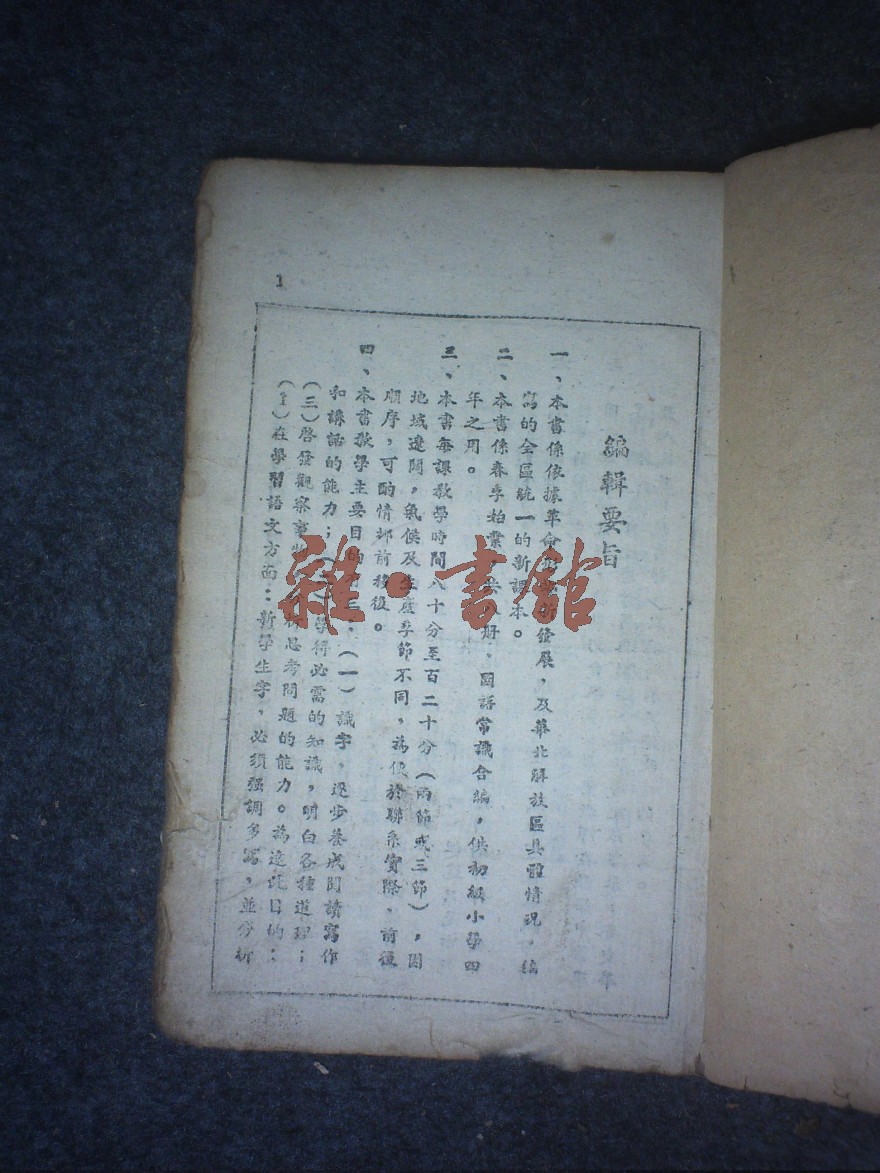 1
編輯要旨
一、本書係依據革命發展，及華北解放區具體情況，編
寫的全區統一的新課本。
二、本書係春季始業，共册，國語常識合編，供初級小學四
年之用。
三、本書每課教學時間八十分至百二十分（兩節或三節），因
地域遼闊，氣候及生產季節不同，為便於聯系實際，前後
順序，可酌情挪前移後。
四、本書教學主要目的三：（一）識字，逐步養成閱讀寫作
和講話的能力；學得必需的知識，明白各種道理；
（三）啓發觀察事思考問題的能力。為達此目的：
（1）在學習語文方面：新學生字，必須强調多寫，並分析
雜·書館